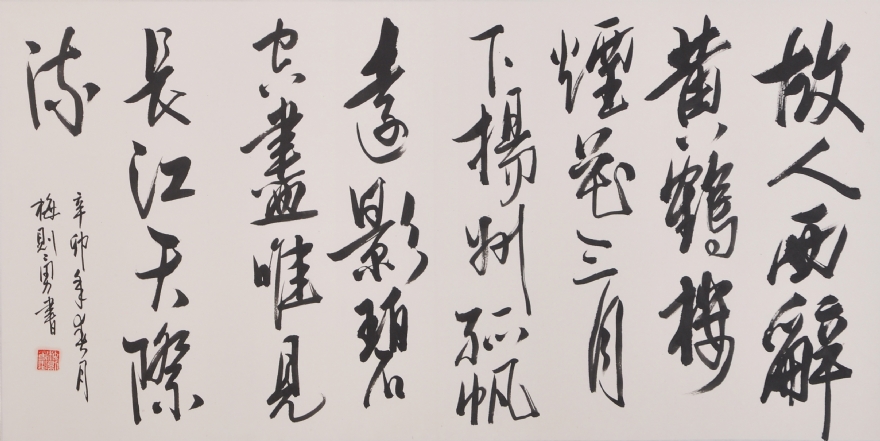 故人西辭
黄鶴樓
煙花三月
下揚州孤帆
遠影碧
空盡唯見
長江天際
流
辛卯年春月
梅則勇書